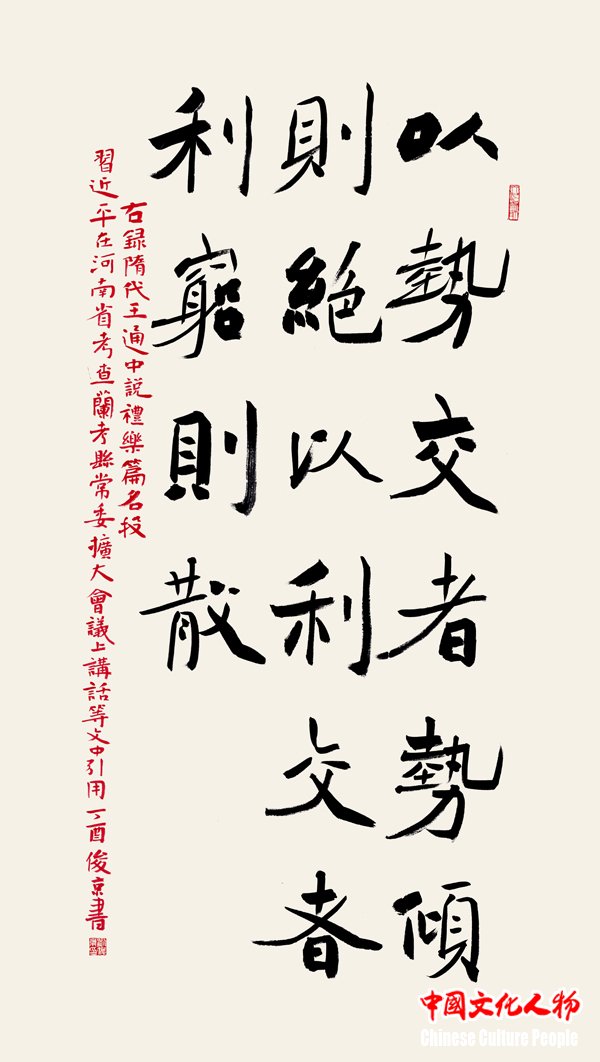 以勢交者勢傾
則絕以利交者
利窮則散
右録隋代王通中說禮樂篇名段
習近平在河南省考查蘭考縣常委擴大會議上講話等文中引用丁酉俊京書
中國文化人物
Chinese Culture People